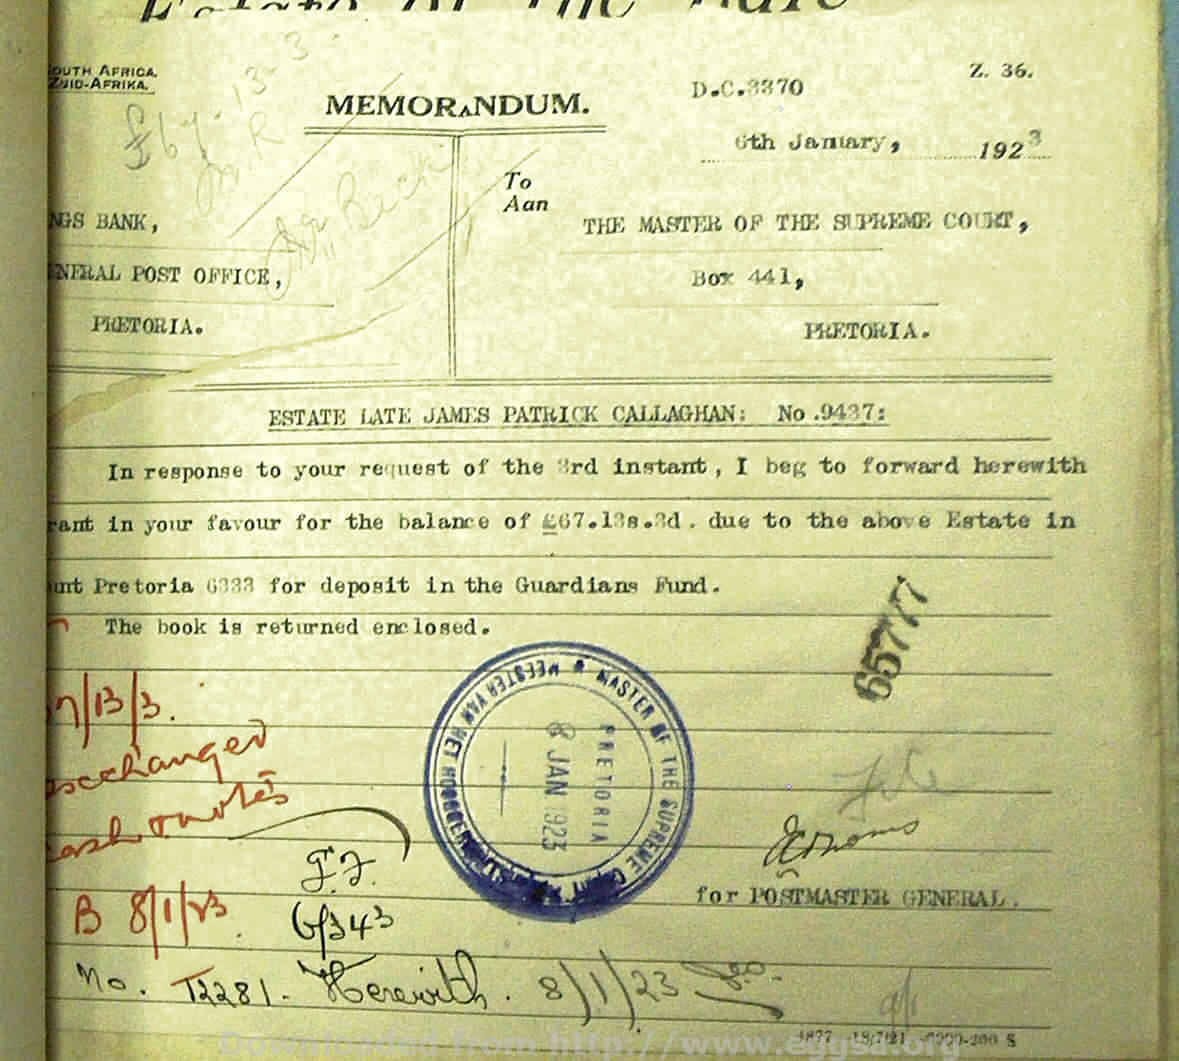 OUTH AFRICA.
ZUID-AFRIKA.
Z. 36.
D.C.3370
MEMORANDUM.
6th January, 1923
£67. 13. 3
To
Aan
NGS BANK,
THE MASTER OF THE SUPREME COURT,
NERAL POST OFFICE,
Box 441,
PRETORIA.
PRETORIA.
ESTATE LATE JAMES PATRICK CALLAGHAN: No.9437:
In response to your request of the 3rd instant, I beg to forward herewith
rant in your favour for the balance of £67.13s.3d. due to the above Estate in
unt Pretoria 6333 for deposit in the Guardians Fund.
The book is returned enclosed.
65777
MASTER OF THE SUPREME COURT
MEESTER VAN HET
PRETORIA
8 JAN 1923
7/13/3.
exchanged
cash notes
for POSTMASTER GENERAL.
G.F.
6/343
B 8/1/23.
No. T2281 - Herewith. 8/1/23
Downloaded from http://www.eggsa.org